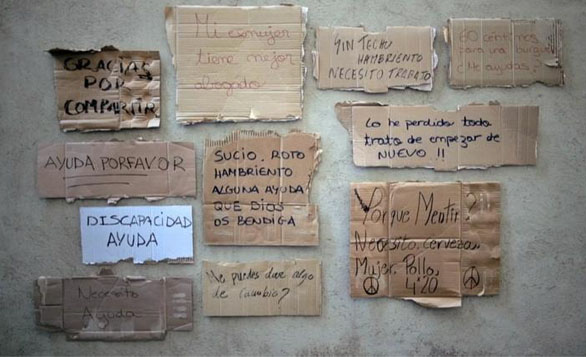 GRACIAS
POR
COMPARTIR
Mi exmujer
tiene mejor
abogado
SIN TECHO
HAMBRIENTO
NECESITO TRABAJO
60 céntimos
para una
¿Me ayudas?
AYUDA PORFAVOR
SUCIO. ROTO
HAMBRIENTO
ALGUNA AYUDA
QUE DIOS
OS BENDIGA
Lo he perdido todo
trato de empezar de
NUEVO !!
DISCAPACIDAD
AYUDA
Porque Mentir?
Necesito cerveza,
Mujer, Pollo,
4'20
Necesito
Ayuda
Me puedes dar algo
de cambio?